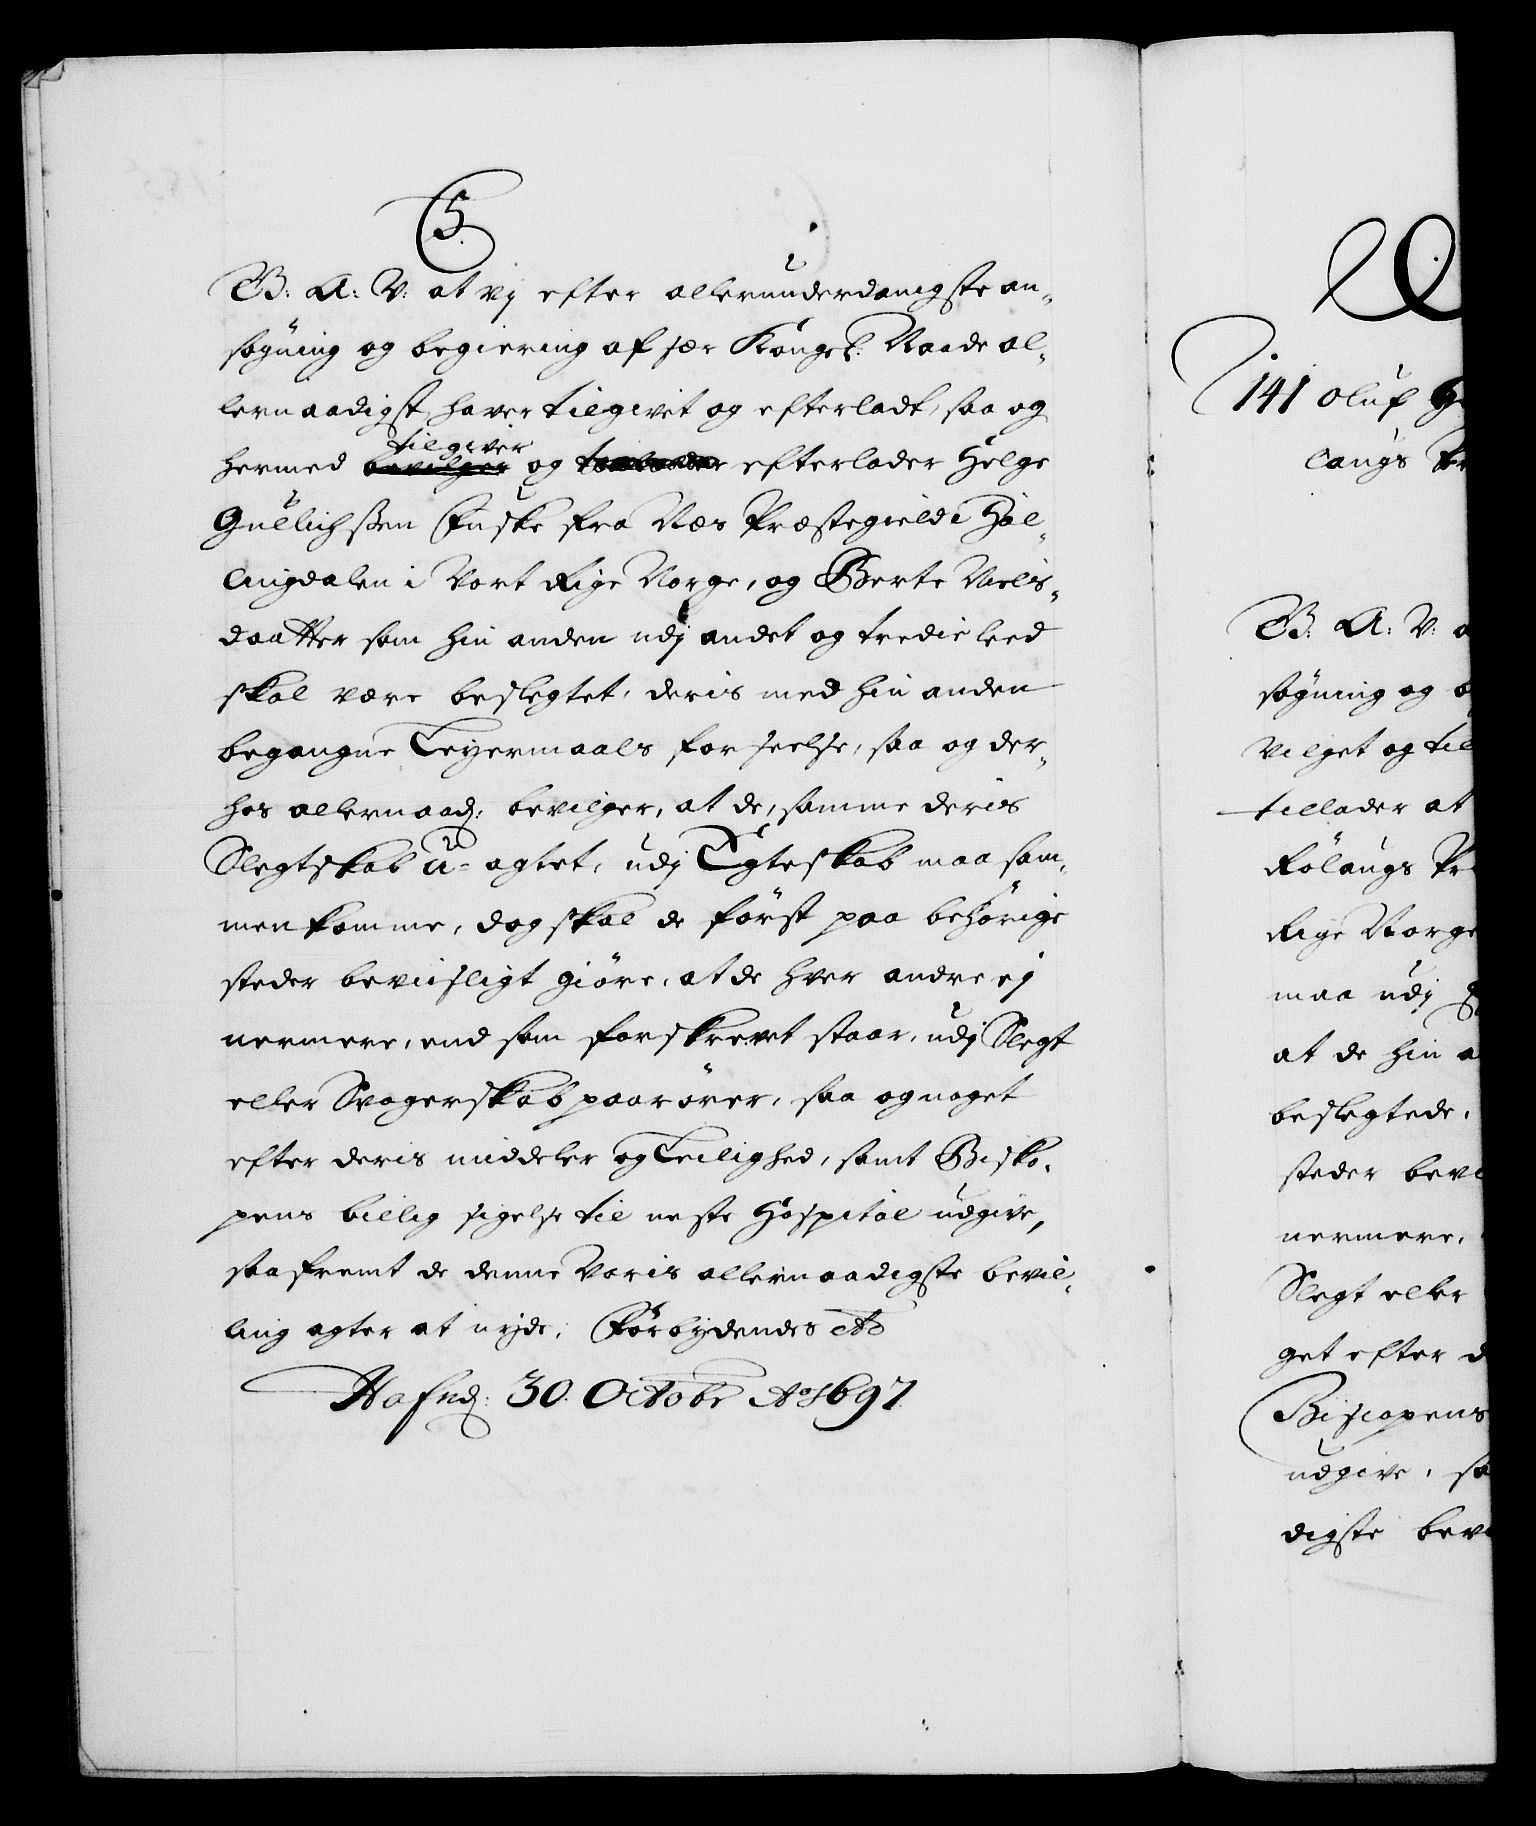 5.
G: A: V: at vj efter allerunderdanigste an-
søgning og begiering af sær Kongel: Naade al-
lernaadigst haver tilgivet og efterladt, saa og
hermed bevilger tilgiver og efterlader Helge
Gullichsen fra Næs Præstegield i Hal-
lingdalen i Vort Rige Norge, og Berte Niels-
daatter som hin anden udj andet og tredie leed
skal være beslegtet, deris med hin anden
begangne Leyermaals forseelse, saa og der-
hos allernaad: bevilger, at de, samme deris
Slegtskab u-agtet, udj Egteskab maa sam-
menkomme, dog skal de først paa behörige
steder beviisligt giöre, at de hver andre ej
nermere, end som forskrevet staar, udj Slegt
eller Svogerskab paarörer, saa og noget
efter deris middeler og Leilighed, samt Bisko-
pens billig sigelse til neste Hospital udgive,
saafremt de denne Voris allernaadigste bevil-
ling agter at nyde, Forbydendes etc
Hafn: 30. Octobr Ao 1697.
141 Oluf
langs
G: A: V:
søgning og
vilget og til
tillader at
Rölaugs
Rige Norge
maa udj
at de hin
beslegtede,
steder
nermere,
Slegt eller
get efter
Biscopens
udgive, sa
digste bev